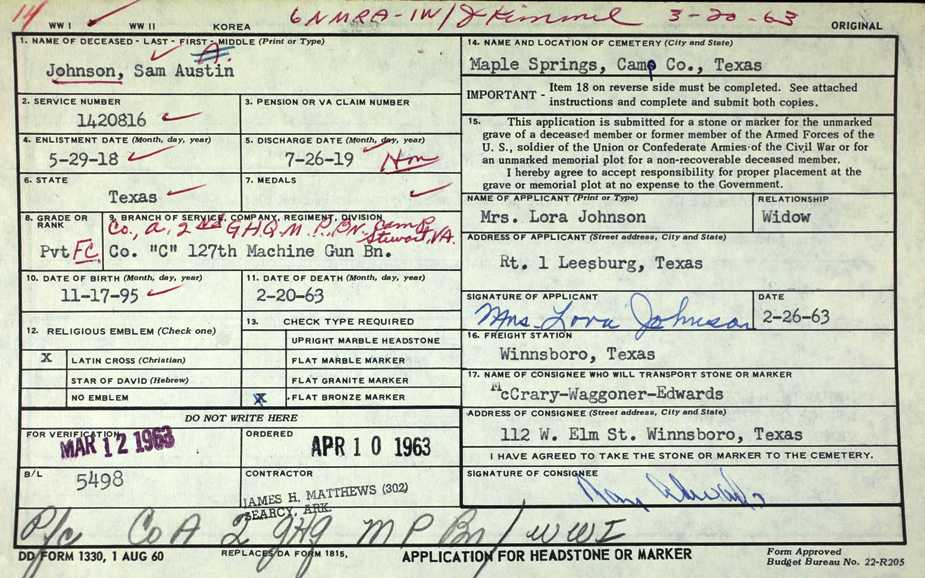 14 WW I ✓ WW II KOREA 6NMRA-1W/J Kimmel 3-20-63 ORIGINAL
1. NAME OF DECEASED - LAST - FIRST - MIDDLE (Print or Type)
A.
Johnson, Sam Austin
2. SERVICE NUMBER
1420816
3. PENSION OR VA CLAIM NUMBER
4. ENLISTMENT DATE (Month, day, year)
5-29-18
5. DISCHARGE DATE (Month, day, year)
7-26-19 Hon
6. STATE
Texas
7. MEDALS
8. GRADE OR RANK
Pvt FC.
9. BRANCH OF SERVICE, COMPANY, REGIMENT, DIVISION
Co, a, 2nd G.H.Q. M.P., Bn. Camp Stewart, VA.
Co. "C" 127th Machine Gun Bn.
10. DATE OF BIRTH (Month, day, year)
11-17-95
11. DATE OF DEATH (Month, day, year)
2-20-63
12. RELIGIOUS EMBLEM (Check one)
X LATIN CROSS (Christian)
STAR OF DAVID (Hebrew)
NO EMBLEM
13. CHECK TYPE REQUIRED
UPRIGHT MARBLE HEADSTONE
FLAT MARBLE MARKER
FLAT GRANITE MARKER
X FLAT BRONZE MARKER
DO NOT WRITE HERE
FOR VERIFICATION
MAR 12 1963
ORDERED
APR 10 1963
B/L
5498
CONTRACTOR
JAMES H. MATTHEWS (302)
SEARCY, ARK.
14. NAME AND LOCATION OF CEMETERY (City and State)
Maple Springs, Camp Co., Texas
IMPORTANT - Item 18 on reverse side must be completed. See attached
instructions and complete and submit both copies.
15. This application is submitted for a stone or marker for the unmarked
grave of a deceased member or former member of the Armed Forces of the
U. S., soldier of the Union or Confederate Armies of the Civil War or for
an unmarked memorial plot for a non-recoverable deceased member.
I hereby agree to accept responsibility for proper placement at the
grave or memorial plot at no expense to the Government.
NAME OF APPLICANT (Print or Type)
Mrs. Lora Johnson
RELATIONSHIP
Widow
ADDRESS OF APPLICANT (Street address, City and State)
Rt. 1 Leesburg, Texas
SIGNATURE OF APPLICANT
Mrs. Lora Johnson
DATE
2-26-63
16. FREIGHT STATION
Winnsboro, Texas
17. NAME OF CONSIGNEE WHO WILL TRANSPORT STONE OR MARKER
McCrary-Waggoner-Edwards
ADDRESS OF CONSIGNEE (Street address, City and State)
112 W. Elm St. Winnsboro, Texas
I HAVE AGREED TO TAKE THE STONE OR MARKER TO THE CEMETERY.
SIGNATURE OF CONSIGNEE
Pfc Co A 2 GHQ M P Bn / WWI
DD FORM 1330, 1 AUG 60
REPLACES DA FORM 1815,
APPLICATION FOR HEADSTONE OR MARKER
Form Approved
Budget Bureau No. 22-R205